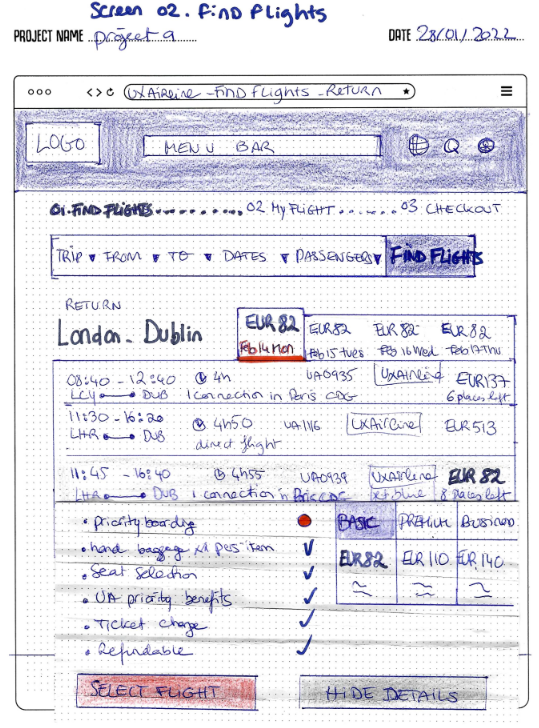 Screen 02. Find Flights
PROJECT NAME project a
DATE 28/01/2022
UXAirline - Find flights - Return
LOGO
MENU BAR
01. FIND FLIGHTS 02 My FLIGHT 03 CHECKOUT
TRIP FROM TO DATES PASSENGERS FIND FLIGHTS
RETURN
London - Dublin
EUR 82 EUR 82 EUR 82 EUR 82
Feb 14 Mon Feb 15 tues Feb 16 Wed Feb 17 Thu
08:40 - 12:40 4h UA0935 UXAirline EUR 137
LCY DUB 1 connection in Paris CDG 6 places left
11:30 - 16:20 4h50 UA1116 UXAirline EUR 513
LHR DUB direct flight
11:45 - 16:40 4h55 UA0939 UXAirline EUR 82
LHR DUB 1 connection in Paris CDG Jet blue 8 places left
• priority boarding
• hand baggage pers item
• Seat Selection
• UA priority benefits
• Ticket change
• Refundable
BASIC PREMIUM Business
EUR 82 EUR 110 EUR 140
SELECT FLIGHT HIDE DETAILS